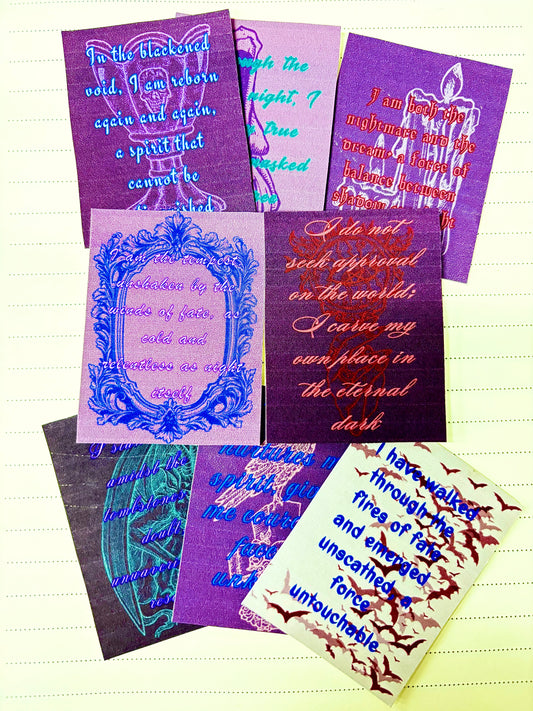 In the blackened
void, I am reborn
again and again,
a spirit that
cannot be
the
night, I
true
I am both the
nightmare and the
dream, a force of
balance between
I am the tempest
unshaken by the
winds of fate, as
cold and
relentless as night
itself
I do not
seek approval
on the world;
I carve my
own place in
the eternal
dark
amidst the
tombstones
doubt
spirit,
me
I have walked
through the
fires of fate
and emerged
unscathed, a
force
untouchable